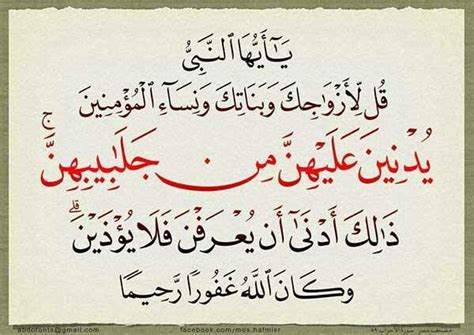 يَـٰٓأَيُّهَا ٱلنَّبِىُّ
قُل لِّأَزْوَٰجِكَ وَبَنَاتِكَ وَنِسَآءِ ٱلْمُؤْمِنِينَ
يُدْنِينَ عَلَيْهِنَّ مِن جَلَـٰبِيبِهِنَّ ۚ
ذَٰلِكَ أَدْنَىٰٓ أَن يُعْرَفْنَ فَلَا يُؤْذَيْنَ ۗ
وَكَانَ ٱللَّهُ غَفُورًا رَّحِيمًا
abdofonts@gmail.com
facebook.com/mos.hafmisr
سورة الأحزاب ٥٩